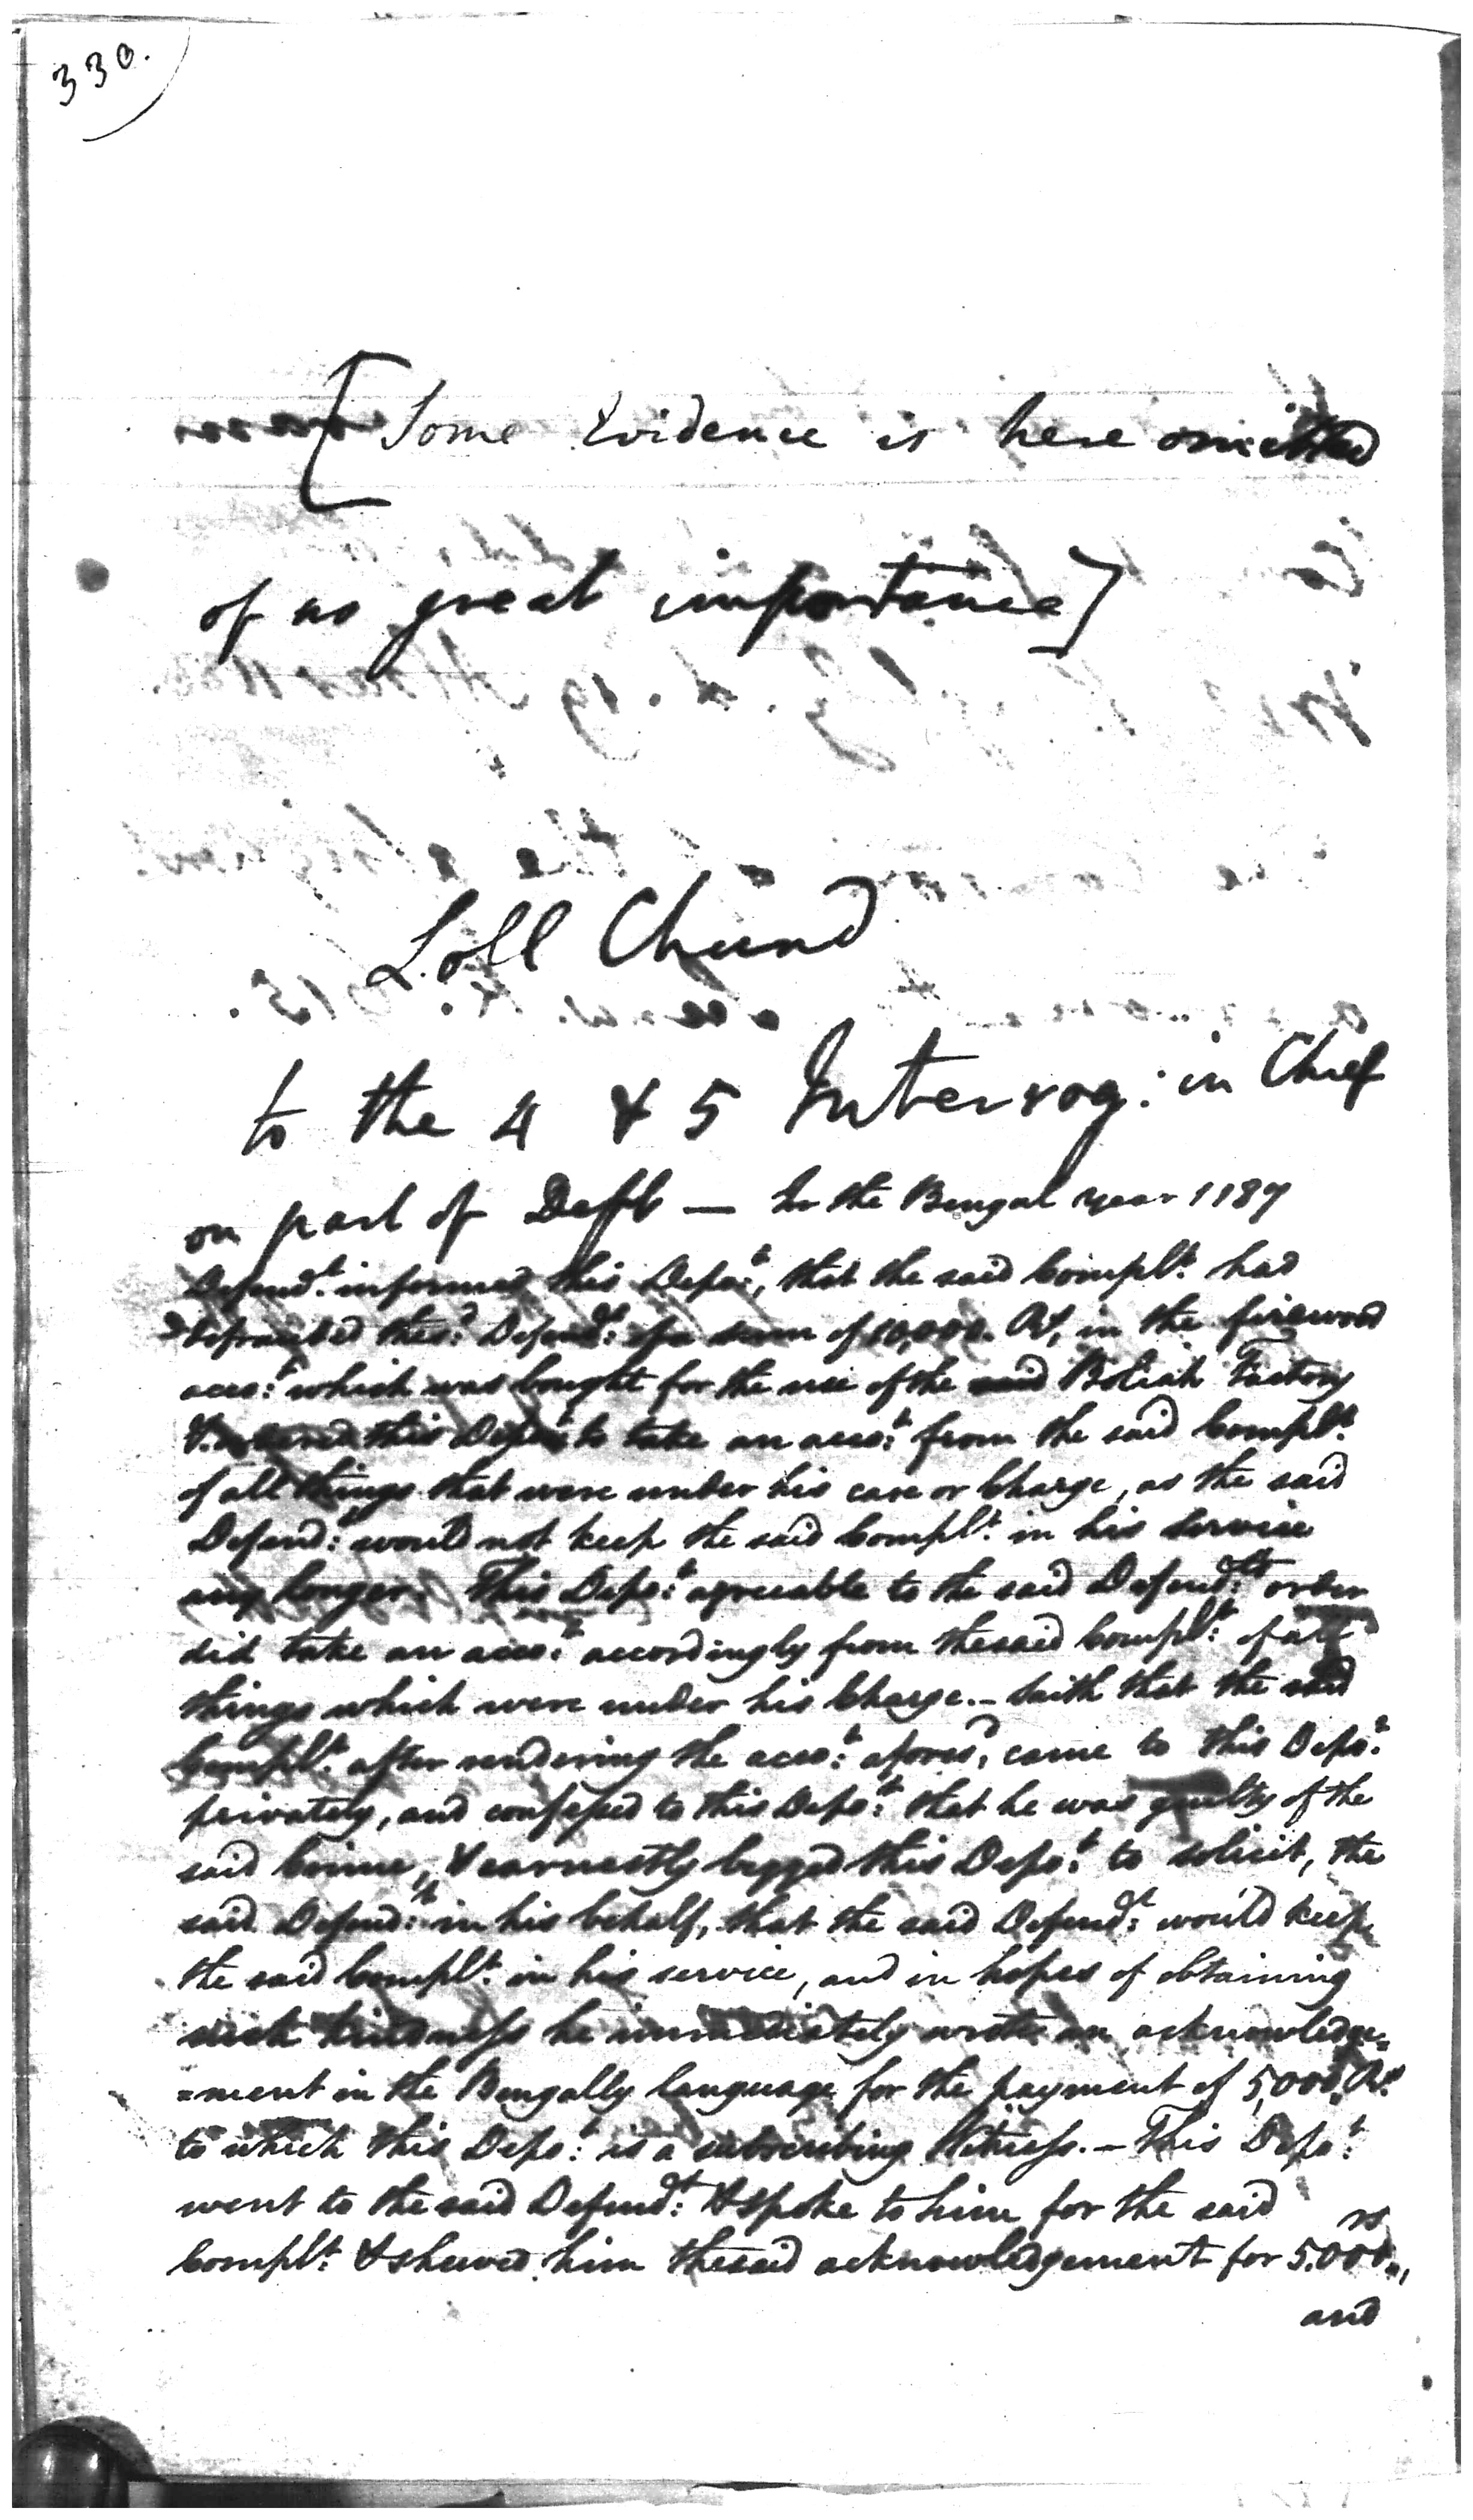 330.
[Some Evidence is here omitted
of no great importance]
Loll Chund
to the 4 & 5 Interrog: in Chief
on part of Deft — In the Bengal year 1187
Defendt. informed this Depot., that the said Complt. had
defrauded the sd. Defendt: of a sum of 10,000. Rs, in the firewood
acco:t which was bought for the use of the said Boliah Factory
& this Depot. to take an acco:t from the said Complt.
of all things that were under his care or Charge, as the said
Defend:t would not keep the said Complt. in his service
any longer. This Depo:t agreeable to the said Defendts: order
did take an acco:t accordingly from the said Complt: of all
things which were under his Charge. – Saith that the said
Complt. after rendering the acco:t aforesd., came to this Depo:t
privately, and confessed to this Depo:t that he was guilty of the
said Crime, & earnestly begged this Depo:t to solicit, the
said Defend:t in his behalf, that the said Defendt: would keep
the said Complt. in his service, and in hopes of obtaining
such kindness he immediately wrote an acknowledge=
=ment in the Bengally language for the payment of 5,000 Rs.
to which this Depo:t is a subscribing Witness. – This Depo:t
went to the said Defendt: & spoke to him for the said
Complt. & shewed him the said acknowledgement for 5.000 rs,
and